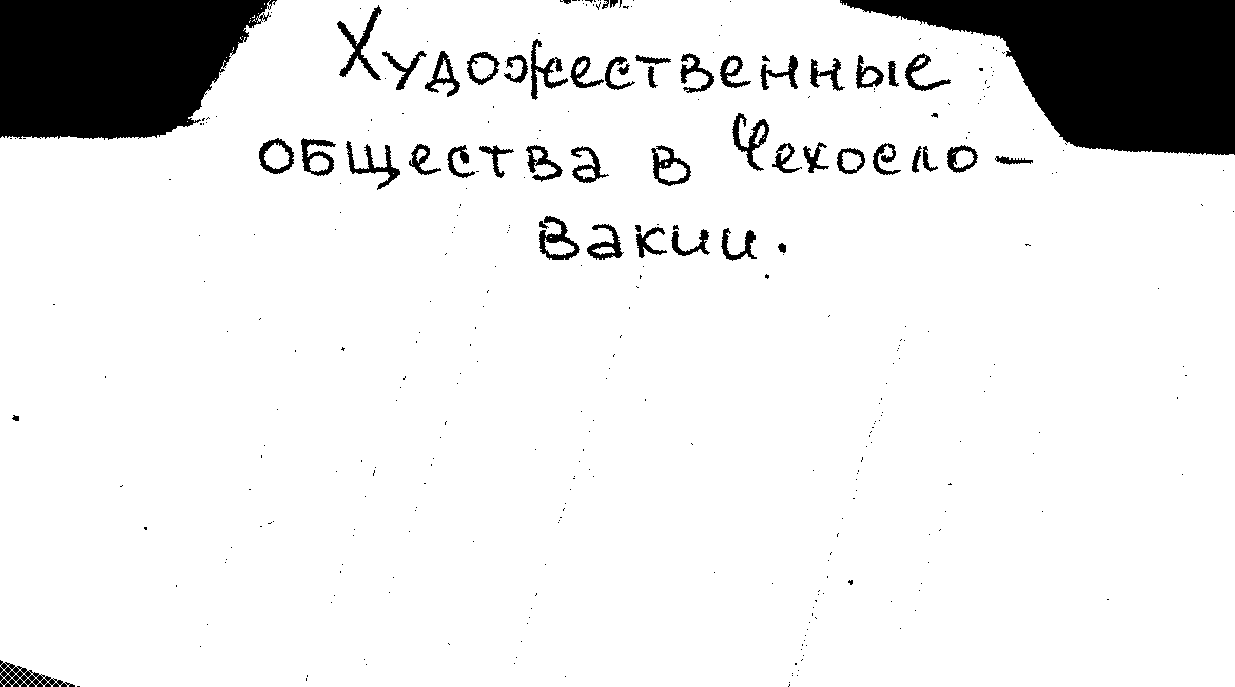 Художественные
общества в Чехосло-
вакии.